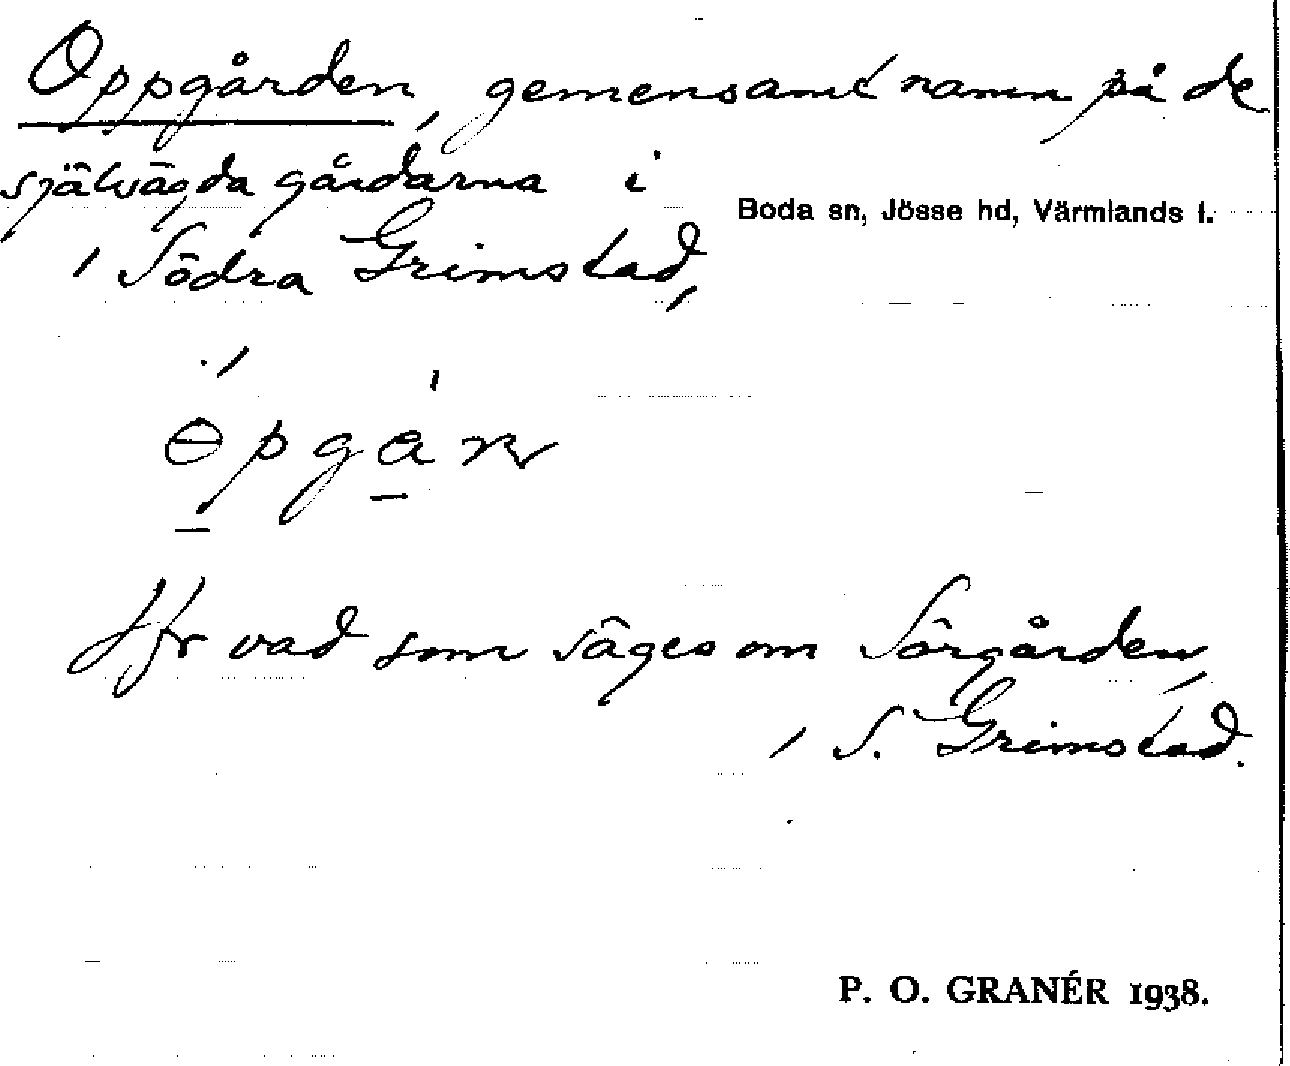 Oppgården, gemensamt namn på de
självägda gårdarna i
Boda sn, Jösse hd, Värmlands l.
i Södra Grimstad,
Jfr vad som säges om Sörgården,
i S. Grimstad.
P. O. GRANÉR 1938.